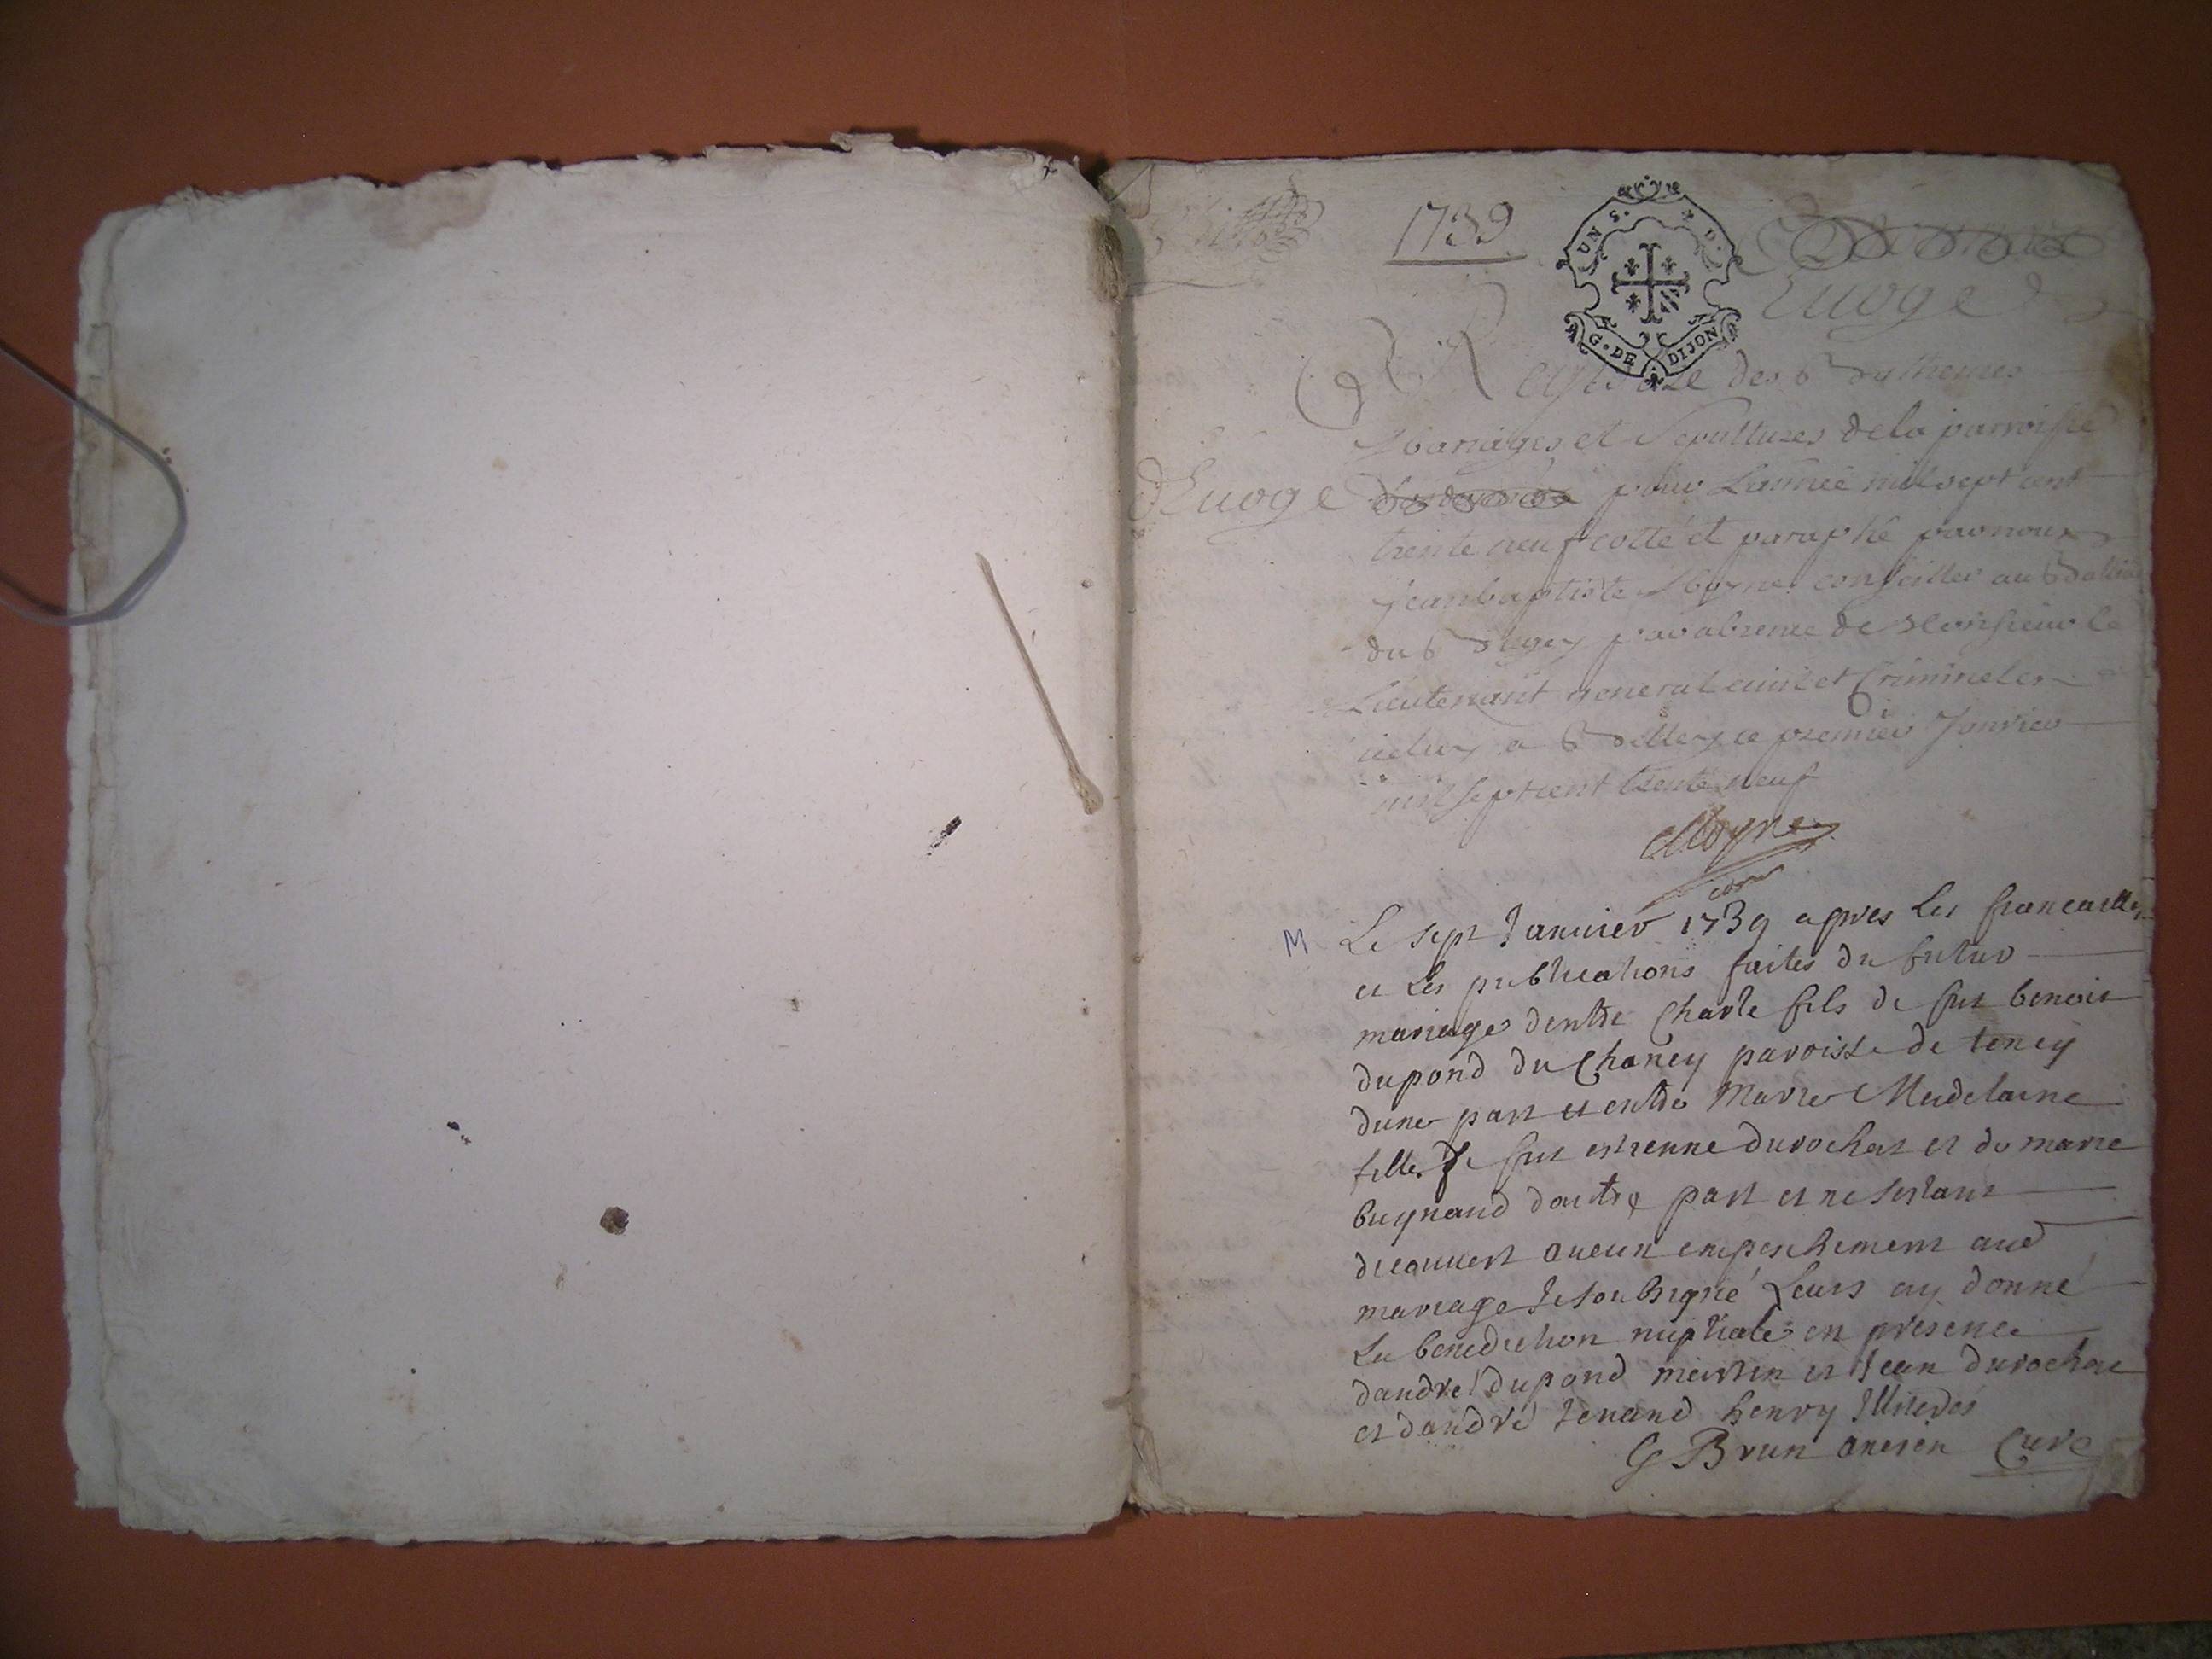 1739
UN S. D.
G. DE DIJON
Evoge
Registre des Bathemes
Mariages et Sepultures de la parroisse
d'Evoge pour L'année mil sept cent
trente neuf cotté et paraphé par nous
Jean baptiste Moyne conseiller au Balliage
du Bugey par absence de Monsieur le
Lieutenant general civil et Criminel es
iceluy a Belley ce premier Janvier
mil sept cent trente neuf
Moyne
M
Le sept Janvier 1739 apres les fiancailles
et les publications faites du futur
mariage dentre Charle fils de fut benoit
dupond du Chaney paroisse de teney
dune part et entre Marie Madelaine
fille de fut estienne durochat et de marie
bugnand dautre part et ne sestant
decouvert aucun empeschement aud
mariage Je soubsigné Leurs ay donné
La benediction nuptiale en presence
dandre dupond martin et Jean durochat
et dandré Jenand henry Illiterés
G Brun ancien Curé